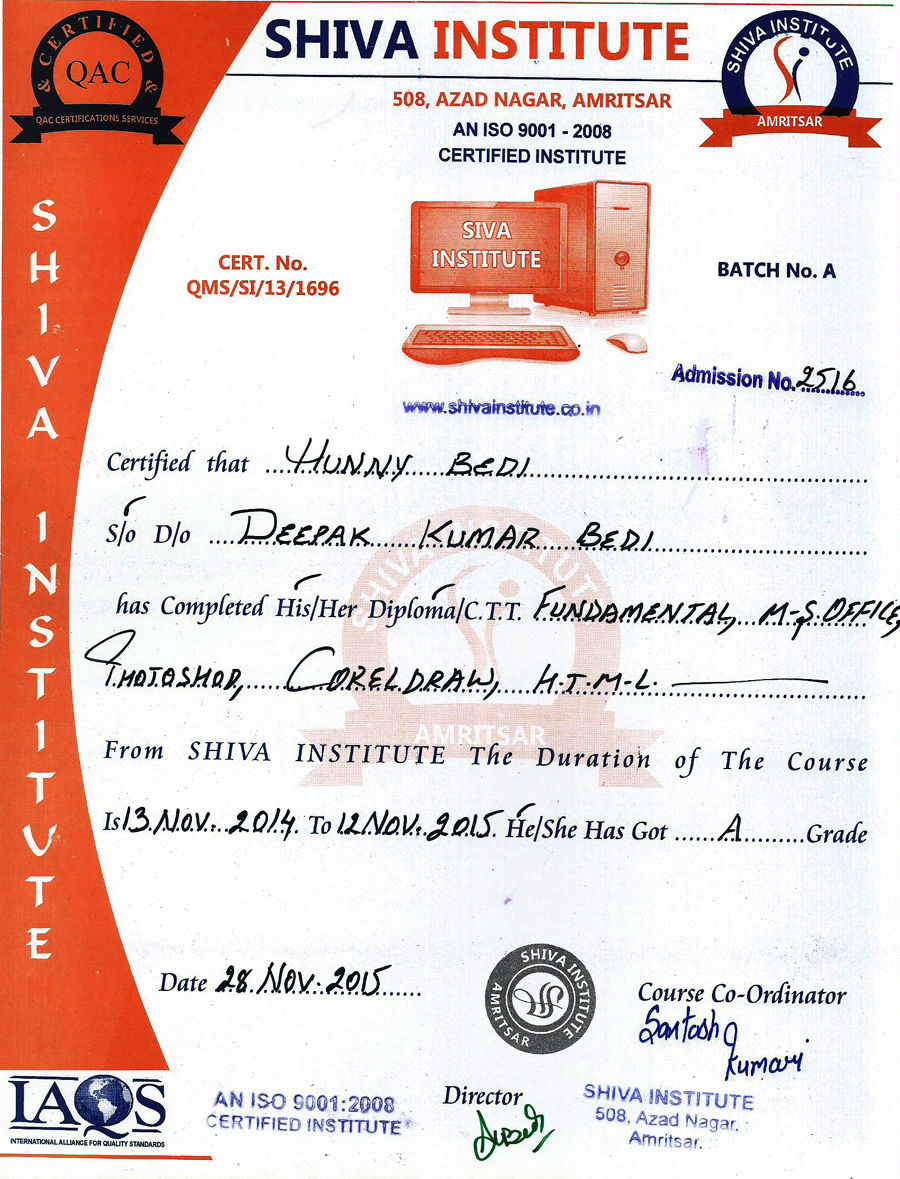 CERTIFIED
& &
QAC
QAC CERTIFICATIONS SERVICES
SHIVA INSTITUTE
SHIVA INSTITUTE
AMRITSAR
508, AZAD NAGAR, AMRITSAR
AN ISO 9001 - 2008
CERTIFIED INSTITUTE
SHIVA INSTITUTE
SIVA
INSTITUTE
CERT. No.
QMS/SI/13/1696
BATCH No. A
Admission No. 2516
www.shivainstitute.co.in
Certified that HUNNY BEDI
S/o D/o DEEPAK KUMAR BEDI
has Completed His/Her Diploma/C.T.T. FUNDAMENTAL, M-S.OFFICE,
PHOTOSHOP, CORELDRAW, H.T.M-L.
SHIVA INSTITUTE
AMRITSAR
From SHIVA INSTITUTE The Duration of The Course
Is 13.NOV. 2014. To 12 NOV. 2015. He/She Has Got A Grade
Date 28.NOV.2015
SHIVA INSTITUTE
AMRITSAR
Course Co-Ordinator
Santosh
Kumari
IAQS
INTERNATIONAL ALLIANCE FOR QUALITY STANDARDS
AN ISO 9001:2008
CERTIFIED INSTITUTE
Director
SHIVA INSTITUTE
508, Azad Nagar.
Amritsar.